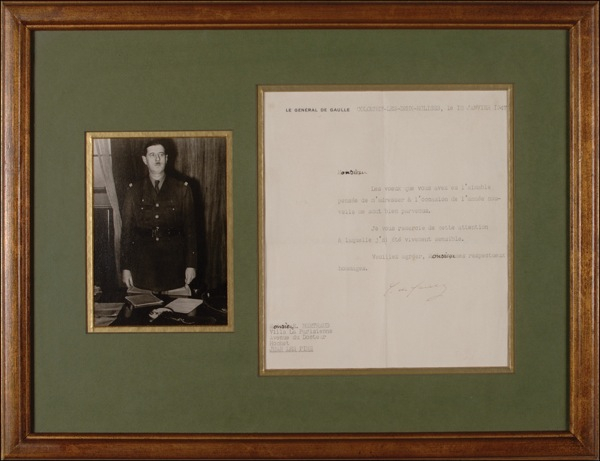 LE GÉNÉRAL DE GAULLE COLOMBEY-LES-DEUX-EGLISES, le 10 JANVIER
Monsieur
Les voeux que vous avez eu l'aimable
pensée de m'adresser à l'occasion de l'année nou-
velle me sont bien parvenus.
Je vous remercie de cette attention
à laquelle j'ai été vivement sensible.
Veuillez agréer, Monsieur, mes respectueux
hommages.
Monsieur
Villa La Parisienne
Avenue du Docteur
Hochet
JUAN LES PINS